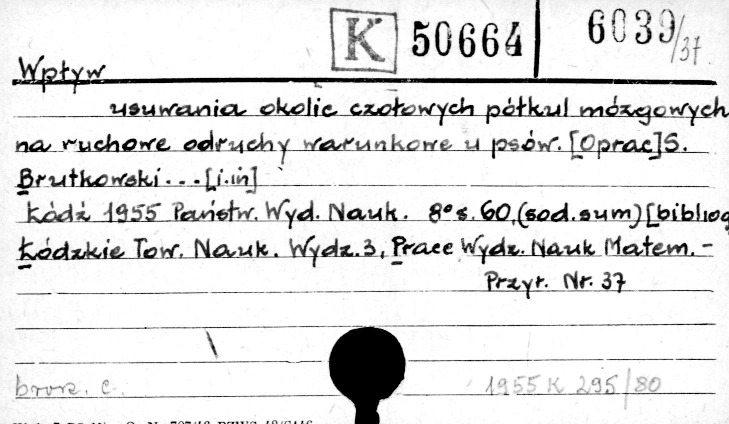 K 50664 6039/37
Wpływ
usuwania okolic czołowych półkul mózgowych
na ruchowe odruchy warunkowe u psów. [Oprac] S.
Brutkowski...[i.in]
Łódź 1955 Państw. Wyd. Nauk. 8° s. 60, (sod. sum) [bibliog
Łódzkie Tow. Nauk. Wydz. 3, Prace Wydz. Nauk Matem.-
Przyr. Nr. 37
brosz. c. 1955 K 295/80